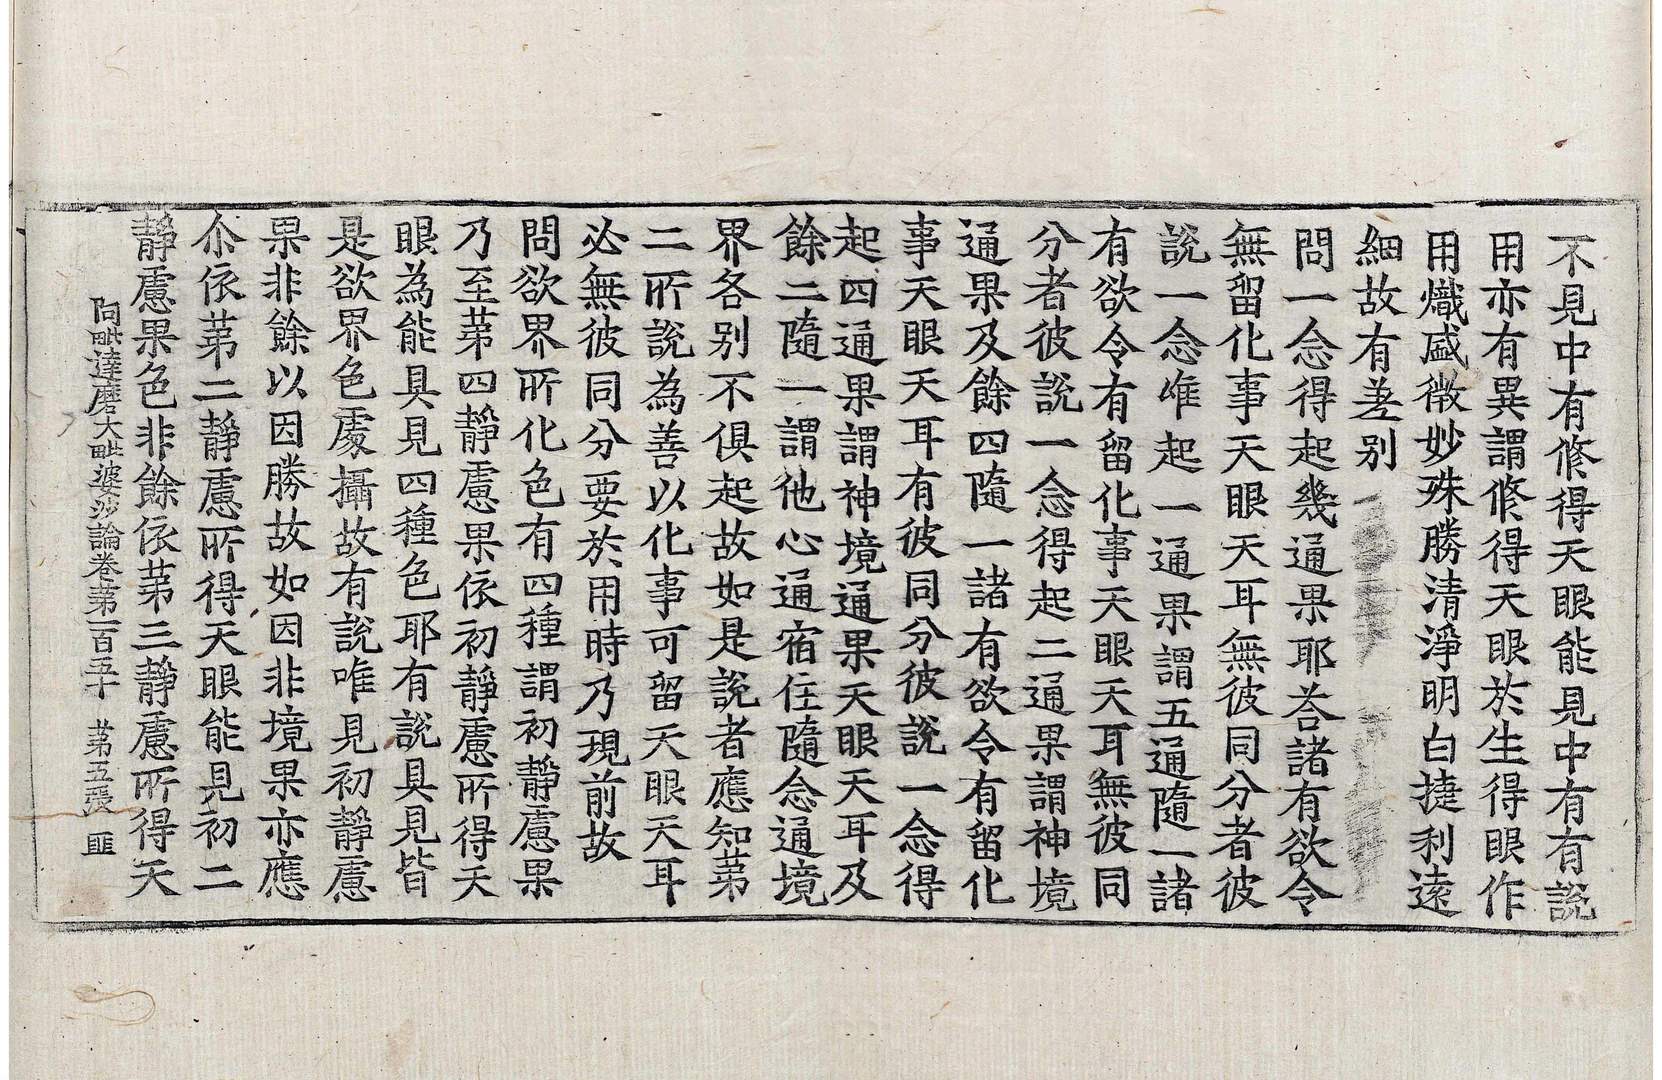 不見中有修得天眼能見中有有說
用亦有異謂修得天眼於生得眼作
用熾盛微妙殊勝清淨明白捷利遠
細故有差別
問一念得起幾通果耶荅諸有欲令
無留化事天眼天耳無彼同分者彼
說一念唯起一通果謂五通隨一諸
有欲令有留化事天眼天耳無彼同
分者彼說一念得起二通果謂神境
通果及餘四隨一諸有欲令有留化
事天眼天耳有彼同分彼說一念得
起四通果謂神境通果天眼天耳及
餘二隨一謂他心通宿住隨念通境
界各別不俱起故如是說者應知苐
二所說為善以化事可留天眼天耳
必無彼同分要於用時乃現前故
問欲界所化色有四種謂初靜慮果
乃至苐四靜慮果依初靜慮所得天
眼為能具見四種色耶有說具見皆
是欲界色處攝故有說唯見初靜慮
果非餘以因勝故如因非境果亦應
尒依苐二靜慮所得天眼能見初二
靜慮果色非餘依苐三靜慮所得天
阿毗達磨大毗婆沙論卷苐一百五十　苐五張　匪